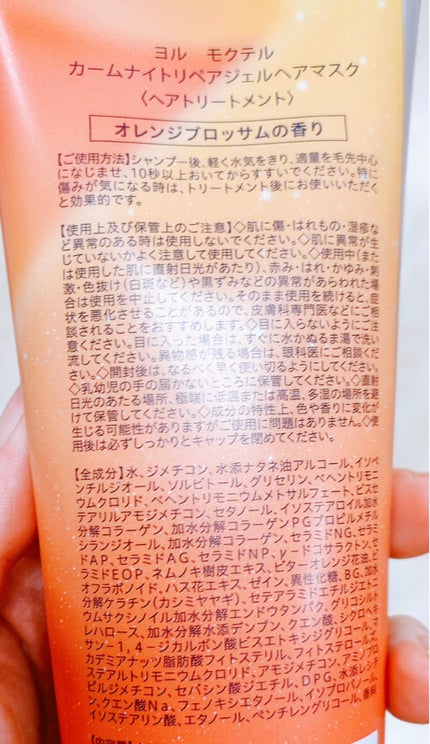 ヨル モクテル
カームナイトリペアジェルヘアマスク
〈ヘアトリートメント〉
オレンジブロッサムの香り
【ご使用方法】シャンプー後、軽く水気をきり、適量を毛先中心
になじませ、10秒以上おいてからすすいでください。特に
傷みが気になる時は、トリートメント後にお使いいただく
と効果的です。
【使用上及び保管上のご注意】◇肌に傷・はれもの・湿疹な
ど異常のある時は使用しないでください。◇肌に異常が生
じていないかよく注意して使用してください。◇使用中(また
は使用した肌に直射日光があたり)、赤み・はれ・かゆみ・刺
激・色抜け(白斑など)や黒ずみなどの異常があらわれた場
合は使用を中止してください。そのまま使用を続けると、症
状を悪化させることがあるので、皮膚科専門医などにご相
談されることをおすすめします。◇目に入らないようにご注
意ください。目に入った場合は、すぐに水かぬるま湯で洗い
流してください。異物感が残る場合は、眼科医にご相談くだ
さい。◇開封後は、なるべく早く使い切るようにしてください。
◇乳幼児の手の届かないところに保管してください。◇直射
日光のあたる場所、極端に低温または高温、多湿の場所を避
けて保管してください。◇成分の特性上、色や香りに変化が
生じる可能性がありますがご使用に問題はありません。◇使
用後は必ずしっかりとキャップを閉めてください。
【全成分】水、ジメチコン、水添ナタネ油アルコール、イソペ
ンチルジオール、ソルビトール、グリセリン、ベヘントリモニ
ウムクロリド、ベヘントリモニウムメトサルフェート、ビスセ
テアリルアモジメチコン、セタノール、イソステアロイル加水
分解コラーゲン、加水分解コラーゲンPGプロピルメチル
シランジオール、加水分解コラーゲン、セラミドNG、セラミ
ドAP、セラミドAG、セラミドNP、γ-ドコサラクトン、セ
ラミドEOP、ネムノキ樹皮エキス、ビターオレンジ花油、ビ
オフラボノイド、ハス花エキス、ゼイン、異性化糖、BG、加水
分解ケラチン(カシミヤヤギ)、セテアラミドエチルジエトニ
ウムサクシノイル加水分解エンドウタンパク、グリコシルト
レハロース、加水分解水添デンプン、クエン酸、シクロヘキ
サン-1,4-ジカルボン酸ビスエトキシジグリコール、マ
カデミアナッツ脂肪酸フィトステリル、フィトステロールズ、
ステアルトリモニウムクロリド、アモジメチコン、アミノプロ
ピルジメチコン、セバシン酸ジエチル、DPG、水添レシチ
ン、クエン酸Na、フェノキシエタノール、イソプロパノール、
イソステアリン酸、エタノール、ペンチレングリコール、香料